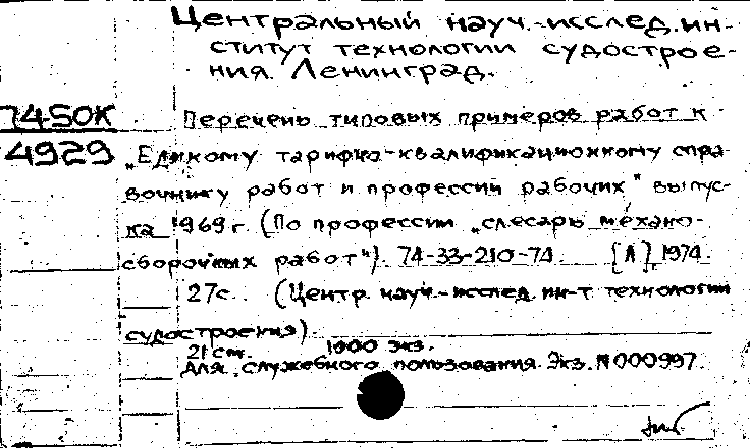 Центральный науч.-исслед. ин-
ститут технологии судострое-
ния. Ленинград.
74-50К
4929
Перечень типовых примеров работ к
„Единому тарифно-квалификационному спра-
вочнику работ и профессий рабочих" выпус-
ка 1969 г. (По профессии „слесарь механо-
сборочных работ"). 74-33-210-74. [Л], 1974.
27с. (Центр. науч.-исслед. ин-т технологии
судостроения).
21 см. 1000 экз.
Для служебного пользования. Экз. N 000997.